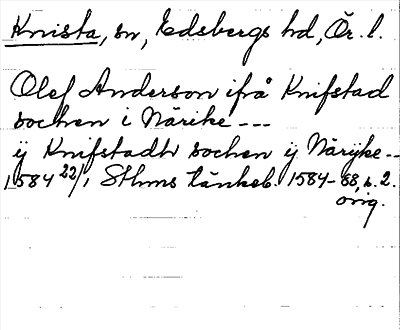 Knista, sn, Edsbergs hd, Ör. l.
Olef Anderson ifrå Knifstad
sochen i Närike ---
ij Knifstadh sochen ij Närijke --
1584 22/1 Sthms tänkeb. 1584-88, s. 2.
orig.